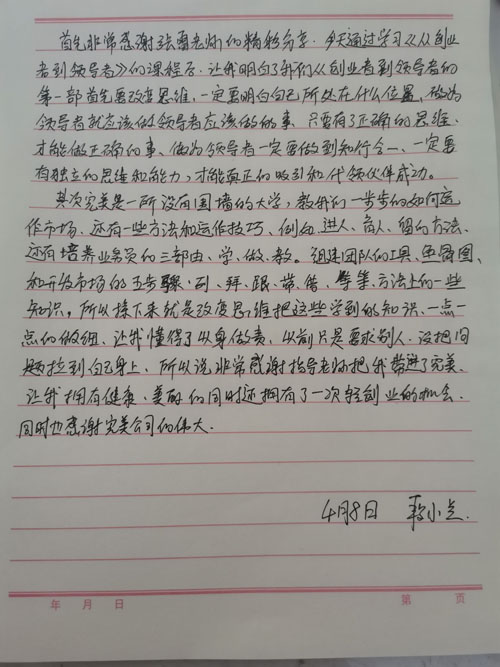 首先非常感谢张雷老师的精彩分享.今天通过学习《从创业
者到领导者》的课程后.让我明白了我们从创业者到领导者的
第一部首先要改变思维.一定要明白自己所处在什么位置,做为
领导者就应该做领导者应该做的事.只要有了正确的思维.
才能做正确的事、做为领导者一定要做到知行合一、一定要
有独立的思维和能力,才能真正的吸引和代领伙伴成功。
其次完美是一所没有围墙的大学,教我们一步步的如何运
作市场、还有一些方法和运作技巧、例如、进人、育人、留人方法、
还有培养业务员的三部曲、学、做、教。组建团队的工具、
和开发市场的五步骤·列、拜、跟、带、等等、方法上的一些
知识。所以接下来就是改变思维把这些学到的知识、一点一
点的做细、让我懂得了以身做责、以前只是要求别人、没把问
题拉到自己身上、所以说非常感谢指导老师把我带进了完美.
让我拥有健康、美丽的同时还拥有了一次轻创业的机会.
同时也感谢完美公司的伟大.
4月8日 小
年 月 日 第 页